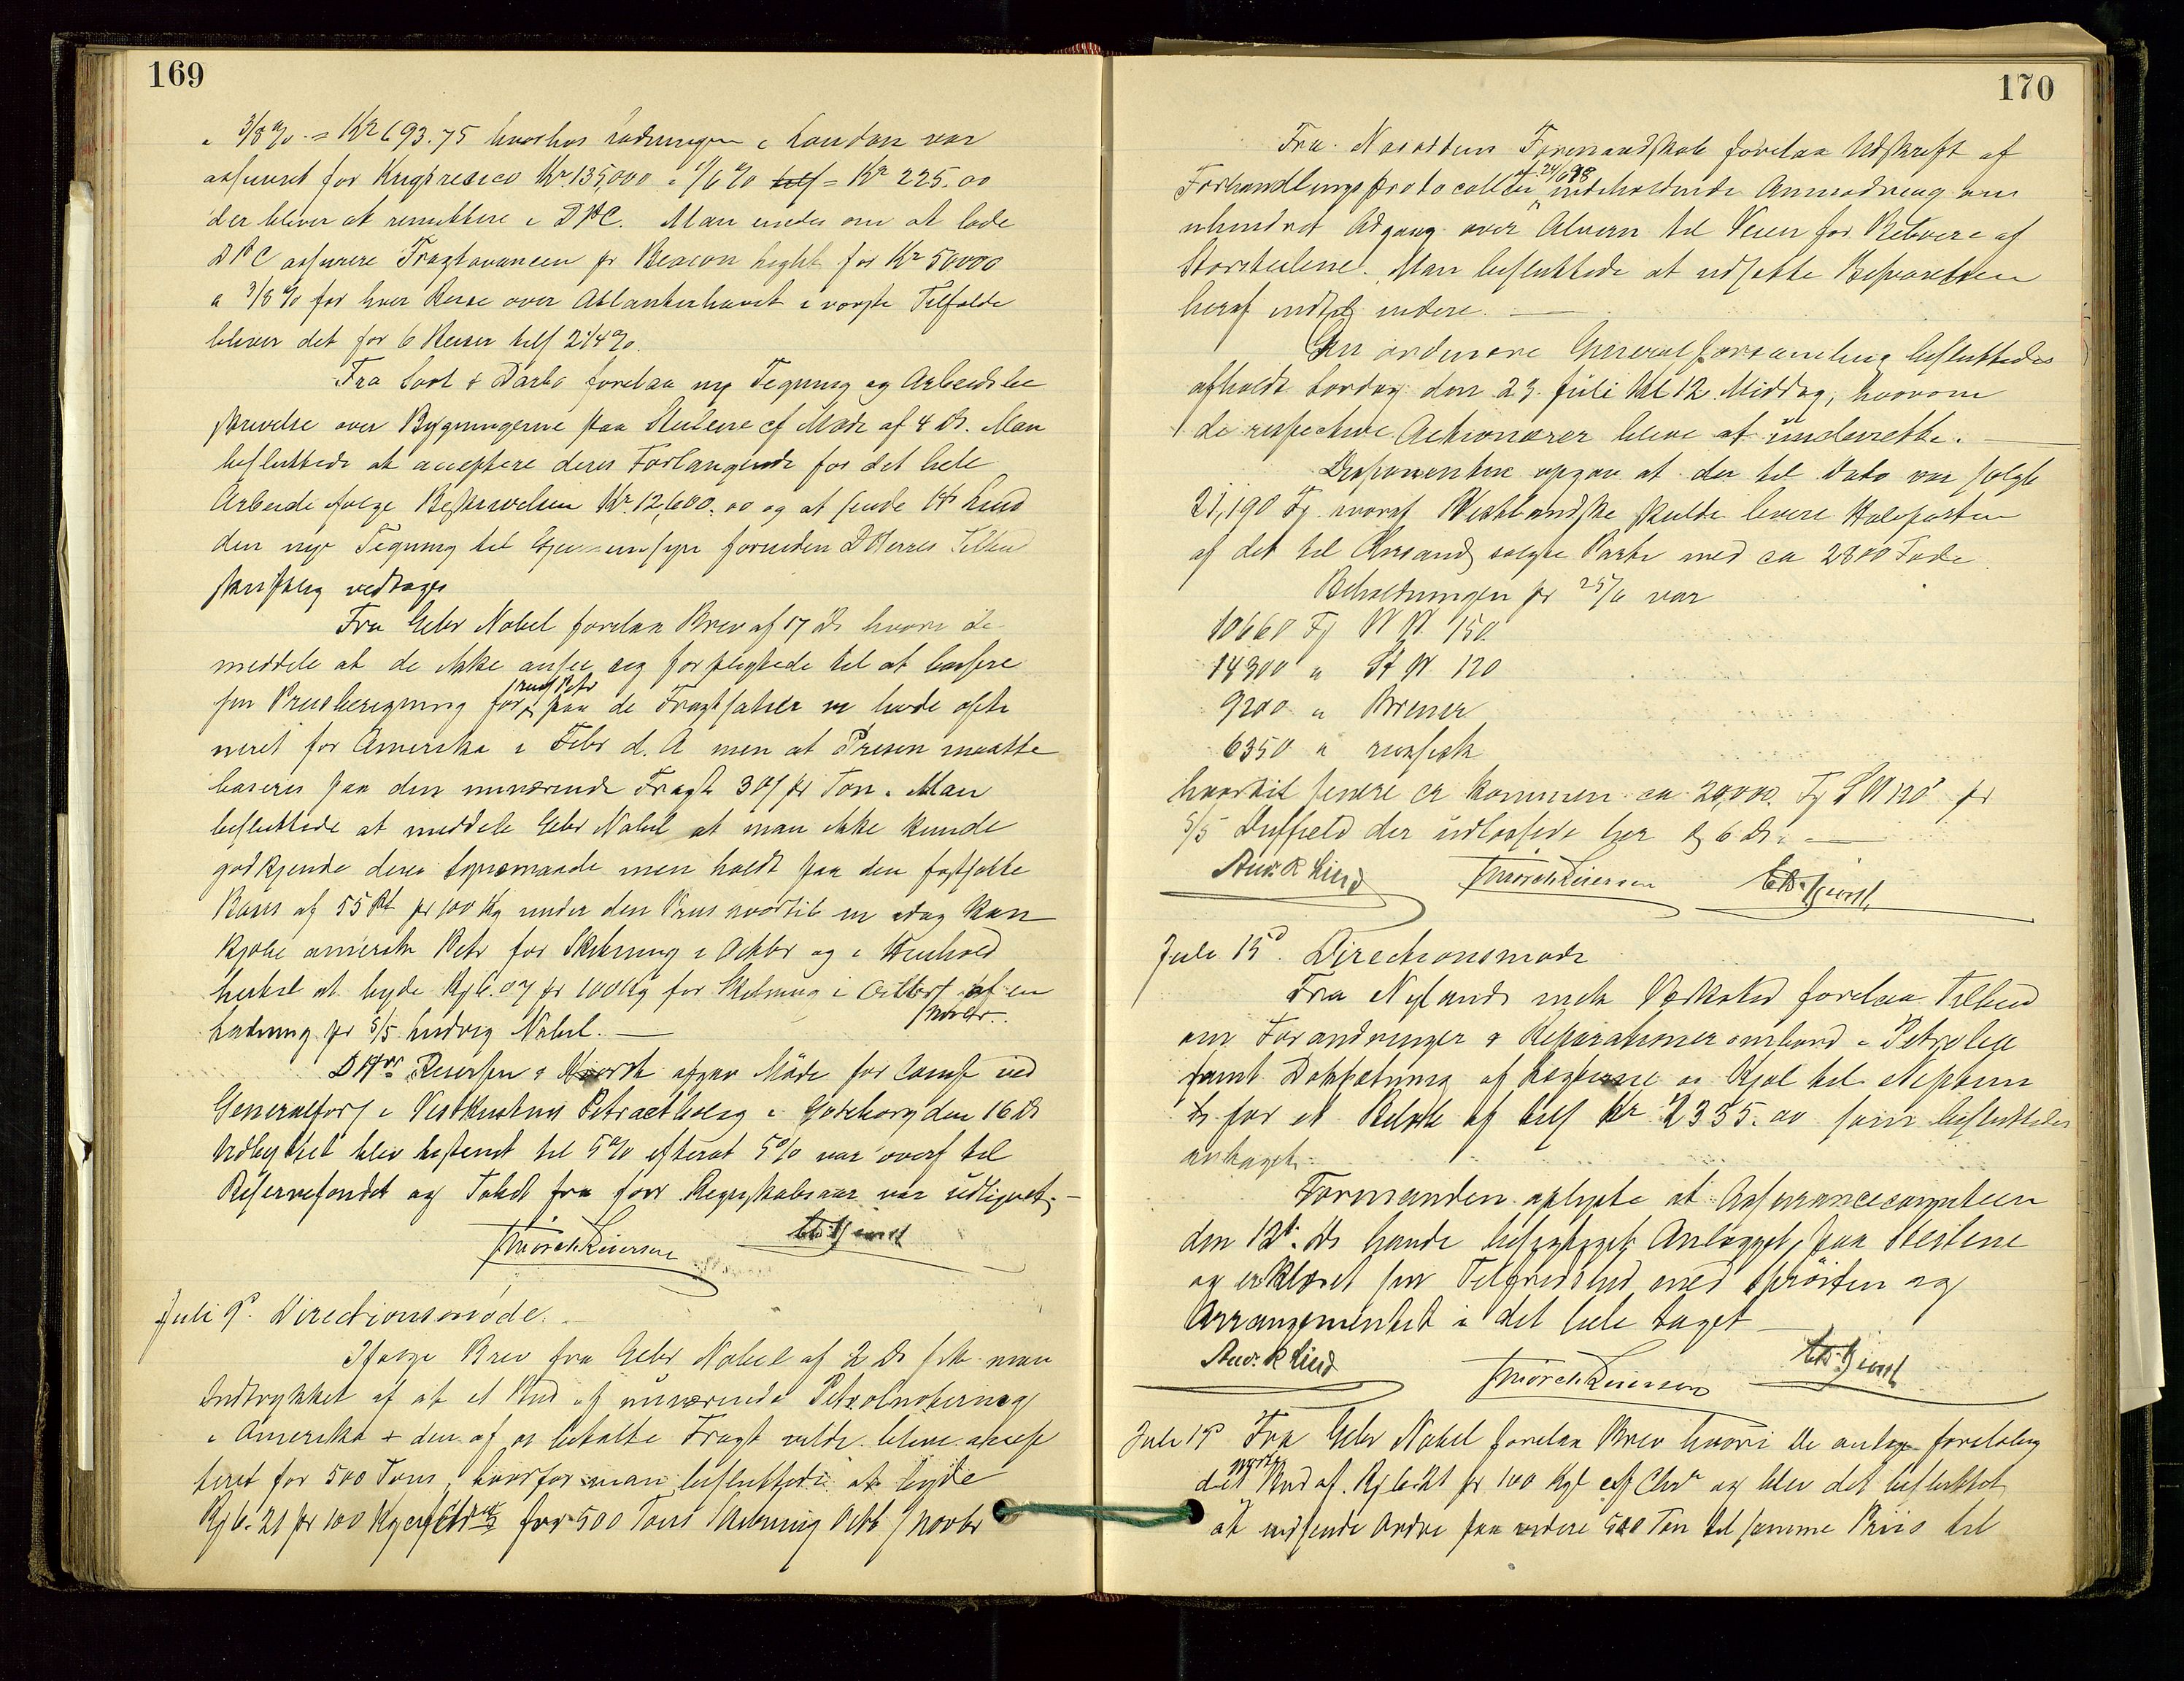 169
a 3/8 % = Kr 693.75 hvorhos ladningen i London var
assureret for Krigsresico Kr. 135,000 a 1/6 % = Kr 225.00
der bliver at remittere i DPC. Man enedes om at lade
DPC assurere Fragtavancen pr Beacon light for Kr 50000
a 3/8 % for hver Reise over Atlanterhavet i vorste Tilfælde
bliver det for 6 Reiser tils 2 1/4 %.
Fra & Darbo forelaa ny Tegning og Arbeidsbe
skrivelse over Bygningerne paa Steilene cf Møde af 4 ds. Man
besluttede at acceptere deres Forlangende for det hele
Arbeide ifølge Beskrivelsen Kr. 12,600.00 og at sende Hr Lind
den nye Tegning til Gjennemsyn forinden D'Herres Tilbud
skriftlig vedtages
Fra Gebr Nobel forelaa Brev af 17 ds hvori de
meddele at de ikke anser sig forpligtede til at basere
sin Prisberegning for russ Petr paa de Fragtsatser vi havde afslu
neret for Amerika i Febr d. A men at Prisen maatte
baseres paa den nuværende Fragt 30/ pr Ton. Man
besluttede at meddele Gebr Nobel at man ikke kunde
godkjende deres Synsmaade men holdt paa den fastsatte
Basis af 55 pr 100 Kg under den Pris hvortil vi idag kan
kjøbe amerik Petr for Skibning i Octbr og i Henhold
hertil at byde Rj 6.07 pr 100 Kg for Skibning i Octbr af en
/Novbr.
Ladning pr S/S Ludvig Nobel. —
D'Hrr Reiersen & Kiørst afgav Møde for Comp ved
Generalfors i Vestkustens Petroelbolag i Gøteborg den 16 ds
Udbyttet blev bestemt til 5 % efterat 5 % var overf til
Reservefondet og Tabet fra forr Regnskabsaar var udlignet. —
J Mørch Reiersen
Juli 9d. Directionsmøde.
Ifølge Brev fra Gebr Nobel af 2 ds fik man
Indtrykket af at et Bud af nuværende Petrolnotering
i Amerika + den af os betalte Fragt vilde blive accep
teret for 500 Tons, hvorfor man besluttede at byde
Rj 6.21 pr 100 Kg for 500 Tons Skibning Octb / Novbr
170
Fra Næsoddens Formandskab forelaa Udskrift af
Forhandlingsprotocollen af 24/6 98 indeholdende Anmodning om
uhindret Adgang over Alvern til Veien for Beboere af
Storsteilene. Man besluttede at udsætte Besvarelsen
heraf indtil videre. —
Den ordinære Generalforsamling besluttedes
afholdt Lørdag den 23 Juli Kl 12 Middag, hvorom
de respective Actionærer bleve at underrette. —
Disponenten opgav at der til Dato var solgt
21,190 Fj hvoraf Vestlandske skulde levere Halvparten
af det til Chrsand solgte Parti med ca 2800 Fade.
Beholdningen pr 25/6 var
10660 Fj W W 150
14300 " St W 120
9200 " Bremer
6350 " russisk
hvortil senere er kommen ca 20,000 Fj S W 120° pr
S/S Duffield der udlossede her d 6 ds. —
Andr. R Lind J Mørch Reiersen
Juli 15d. Directionsmøde
Fra Nylands mek Værksted forelaa Tilbud
om Forandringer & Reparationer ombord i Petrolea
samt Doksætning af Lægterne og Kjøl til Neptun
ds for et Beløb af tils Kr 2335.00 som besluttedes
antaget.
Formanden oplyste at Assurancecomiteen
den 12t. ds havde besigtiget Anlægget paa Steilene
og erklæret sin Tilfredshed med Sprøiten og
Arrangementet i det hele taget —
Andr. R Lind J Mørch Reiersen
Juli 19d Fra Gebr Nobel forelaa Brev hvori De antog foreløbig
det Bud af Rj 6.21 pr 100 Kg cif Chra og blev det besluttet
at indsende Ordre paa videre 500 Ton til samme Priis til